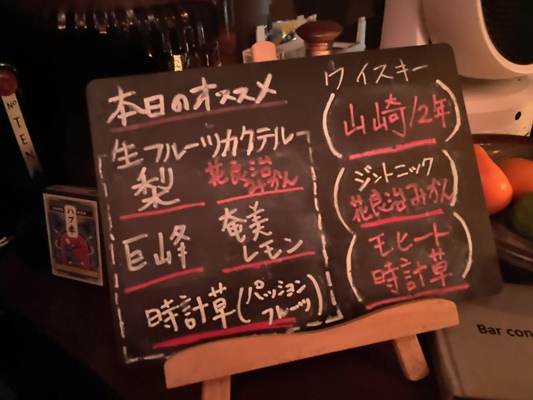 本日のオススメ
生フルーツカクテル
梨
花良治
みかん
巨峰
奄美
レモン
時計草(パッション
フルーツ)
ウイスキー
(山崎12年)
(ジントニック
花良治みかん)
(モヒート
時計草)
No TEN
ハブ酒
Bar con